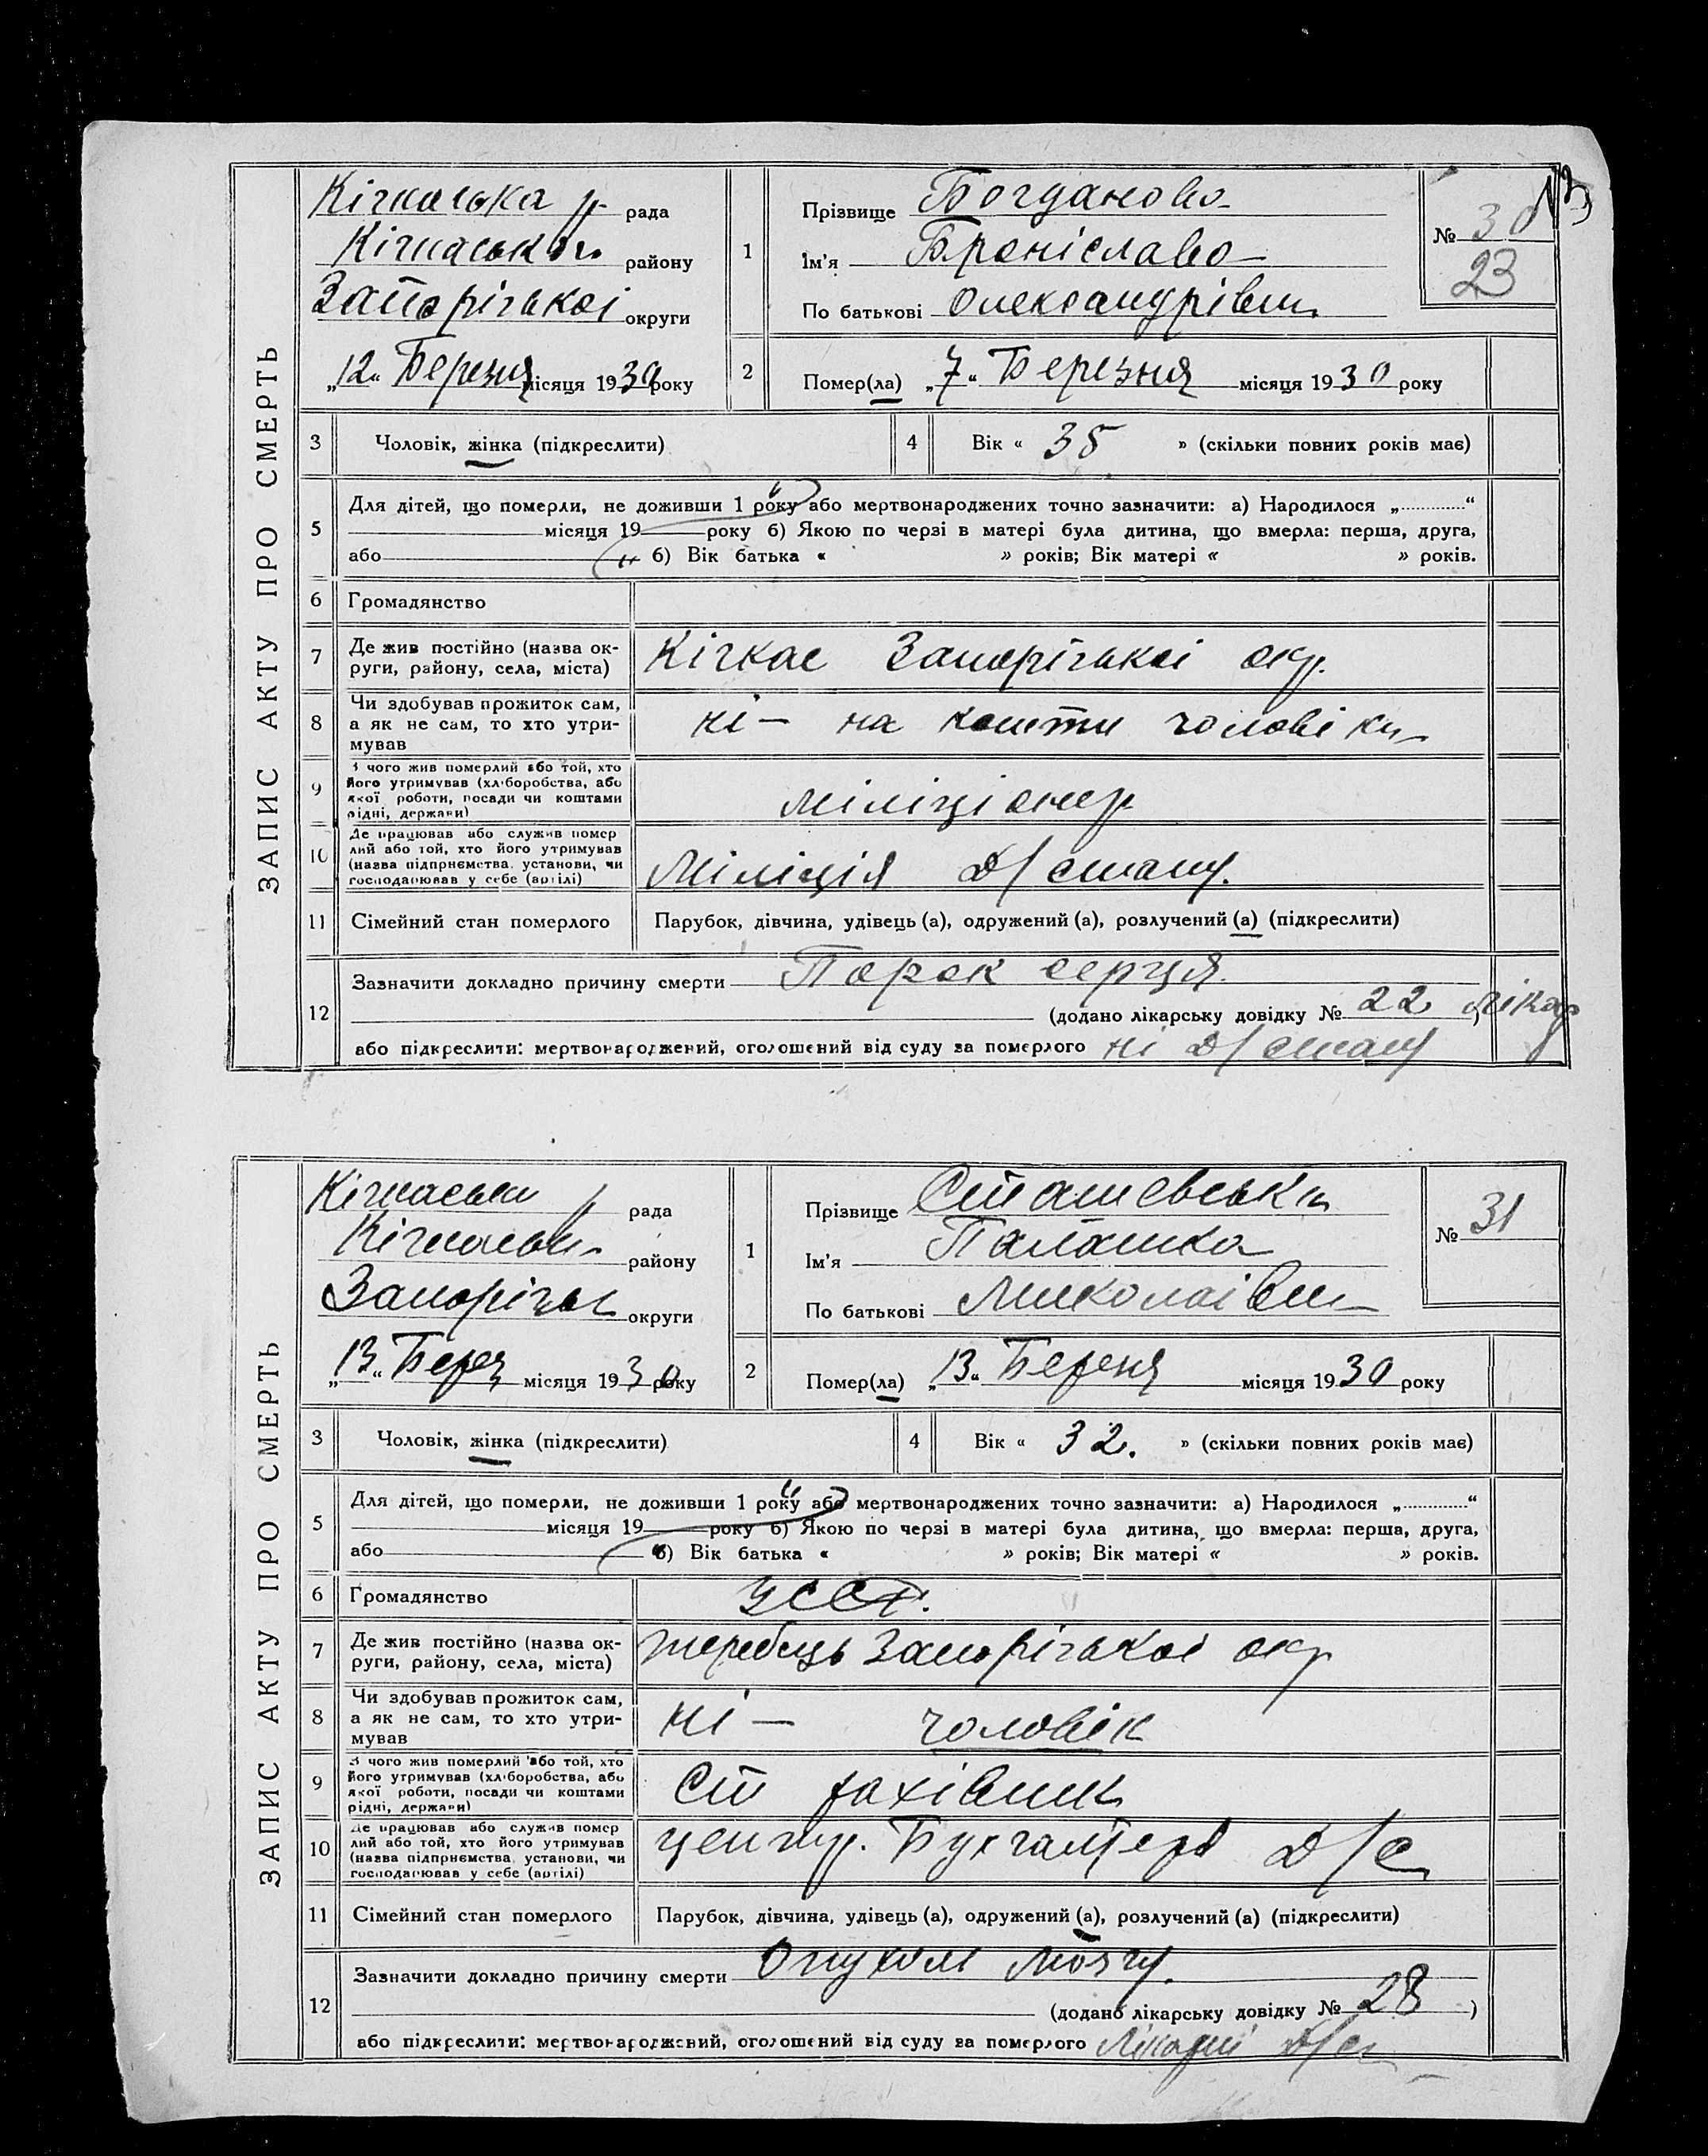 ЗАПИС АКТУ ПРО СМЕРТЬ
Кічкаська р. рада
Кічкаськ району
Запорізької округи
„12“ Березня місяця 1930 року
1
Прізвище Богданова
Ім'я Броніслава
По батькові Олександрівн
№ 30
23
2
Помер(ла) „7“ Березня місяця 1930 року
3 Чоловік, жінка (підкреслити)
4 Вік « 35 » (скільки повних років має)
5 Для дітей, що померли, не доживши 1 року або мертвонароджених точно зазначити: а) Народилося „ “
місяця 19 року б) Якою по черзі в матері була дитина, що вмерла: перша, друга,
або б) Вік батька « » років; Вік матері « » років.
6 Громадянство
7 Де жив постійно (назва ок-
руги, району, села, міста)
Кічкас Запорізької окр.
8 Чи здобував прожиток сам,
а як не сам, то хто утри-
мував
ні — на кошти чоловіка
9 З чого жив померлий або той, хто
його утримував (хліборобства, або
якої роботи, посади чи коштами
рідні, держави)
міліціонер
10 Де працював або служив помер
лий або той, хто його утримував
(назва підприємства, установи, чи
господарював у себе (артілі)
Міліція Д/стану.
11 Сімейний стан померлого Парубок, дівчина, удівець (а), одружений (а), розлучений (а) (підкреслити)
12 Зазначити докладно причину смерти Порок серця
(додано лікарську довідку № 22 лікар
або підкреслити: мертвонароджений, оголошений від суду за померлого ні Д/стану
ЗАПИС АКТУ ПРО СМЕРТЬ
Кічкаськ р рада
Кічкаськ району
Запорізьк округи
„13“ Берез місяця 1930 року
1
Прізвище Сташевська
Ім'я Палашка
По батькові Миколаївн
№ 31
2
Помер(ла) „13“ Березня місяця 1930 року
3 Чоловік, жінка (підкреслити)
4 Вік « 32. » (скільки повних років має)
5 Для дітей, що померли, не доживши 1 року або мертвонароджених точно зазначити: а) Народилося „ “
місяця 19 року б) Якою по черзі в матері була дитина, що вмерла: перша, друга,
або б) Вік батька « » років; Вік матері « » років.
6 Громадянство УССР.
7 Де жив постійно (назва ок-
руги, району, села, міста)
жеребець Запорізької окр
8 Чи здобував прожиток сам,
а як не сам, то хто утри-
мував
ні — чоловік
9 З чого жив померлий або той, хто
його утримував (хліборобства, або
якої роботи, посади чи коштами
рідні, держави)
Ст рахівник
10 Де працював або служив помер
лий або той, хто його утримував
(назва підприємства, установи, чи
господарював у себе (артілі)
центр. Бухгалтерія Д/С
11 Сімейний стан померлого Парубок, дівчина, удівець (а), одружений (а), розлучений (а) (підкреслити)
12 Зазначити докладно причину смерти Опухолі мозгу.
(додано лікарську довідку № 28 )
або підкреслити: мертвонароджений, оголошений від суду за померлого Лікарні Д/С